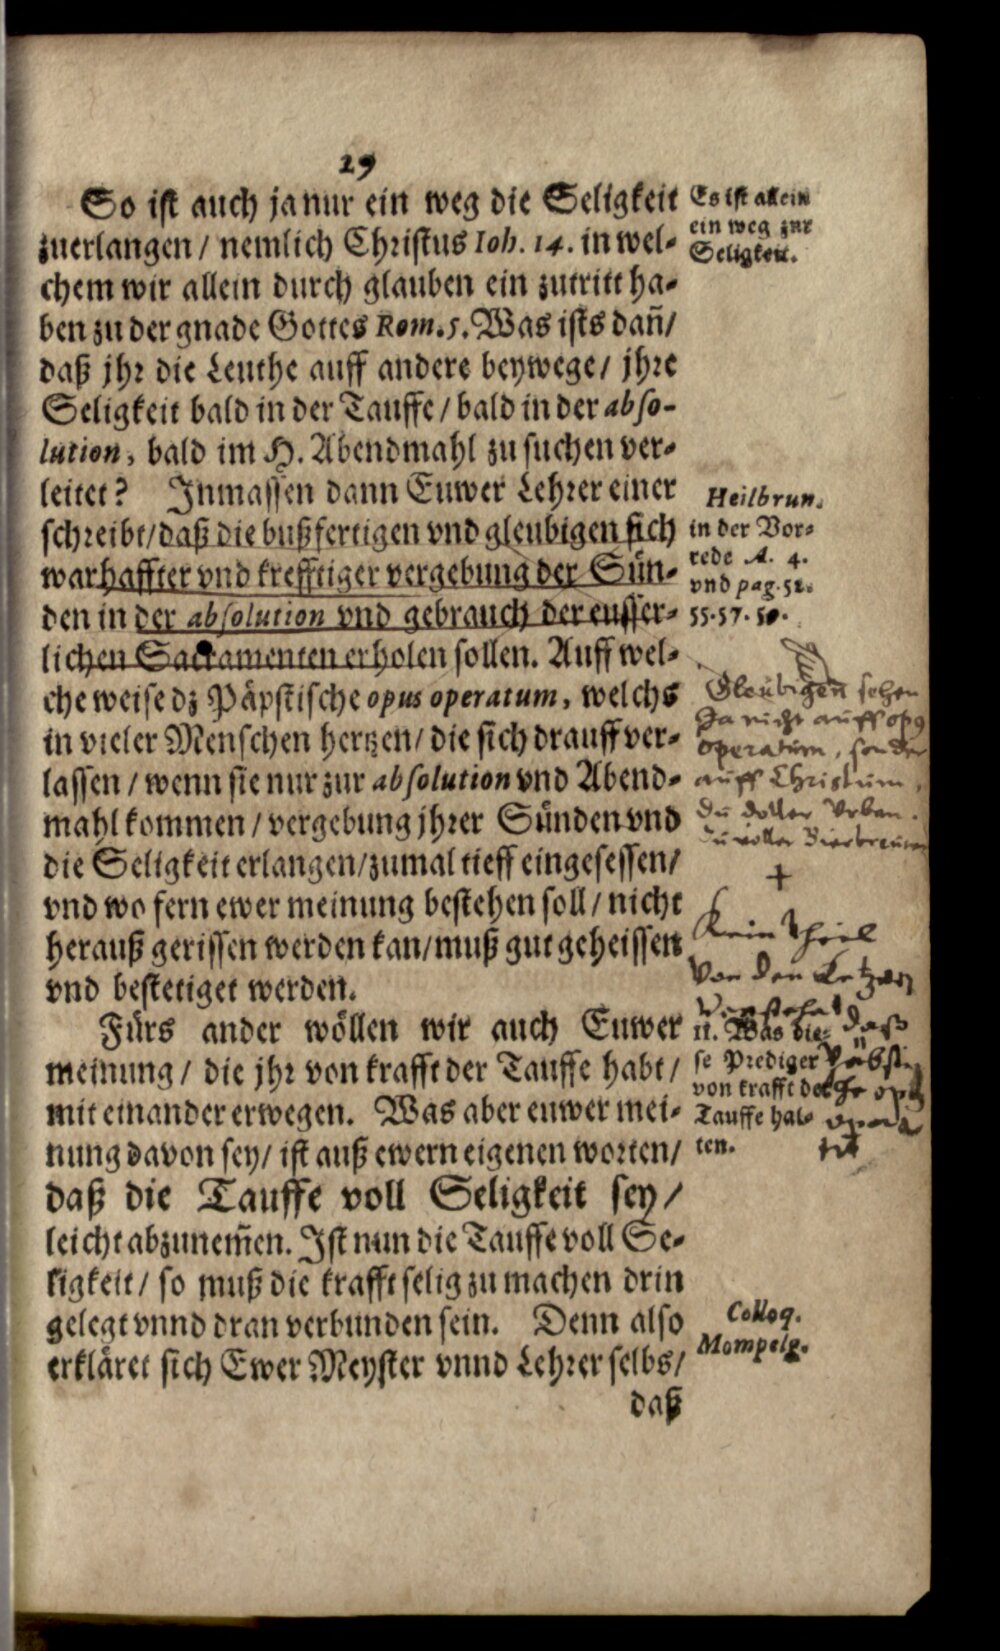 29
So ist auch ja nur ein weg die Seligkeit
zuerlangen / nemlich Christus Ioh. 14. in wel-
chem wir allein durch glauben ein zutritt ha-
ben zu der gnade Gottes Rom. 5. Was ists dañ /
daß jhr die Leuthe auff andere beywege / jhre
Seligkeit bald in der Tauffe / bald in der abso-
lution, bald im H. Abendmahl zu suchen ver-
leitet? Inmassen dann Euwer Lehrer einer
schreibt / daß die bußfertigen vnd gleubigen sich
warhaffter vnd krefftiger vergebung der Sün-
den in der absolution vnd gebrauch der eusser-
lichen Sacramenten erholen sollen. Auff wel-
che weise dz Päpstische opus operatum, welchs
in vieler Menschen hertzen / die sich drauff ver-
lassen / wenn sie nur zur absolution vnd Abend-
mahl kommen / vergebung jhrer Sünden vnd
die Seligkeit erlangen / zumal tieff eingesessen /
vnd wo fern ewer meinung bestehen soll / nicht
herauß gerissen werden kan / muß gut geheissen
vnd bestetiget werden.
Fürs ander wöllen wir auch Euwer
meinung / die jhr von krafft der Tauffe habt /
mit einander erwegen. Was aber euwer mei-
nung davon sey / ist auß ewern eigenen worten /
daß die Tauffe voll Seligkeit sey /
leicht abzunem̃en. Ist nun die Tauffe voll Se-
ligkeit / so muß die krafft selig zu machen drin
gelegt vnnd dran verbunden sein. Denn also
erkläret sich Ewer Meyster vnnd Lehrer selbs /
daß
Es ist allein
ein weg zur
Seligkeit.
Heilbrun.
in der Vor-
rede A. 4.
vnd pag. 52.
55. 57. 59.
Gleubigen sehen
Ja nicht auff opq
operatum, sonder
auff Christum,
du doller Urban.
du voller
+
Kein theil
Von den Ketzern
Verstehet
daß
II. Was die-
se Prediger
von krafft der
Tauffe hal-
ten.
Colloq.
Mompelg.